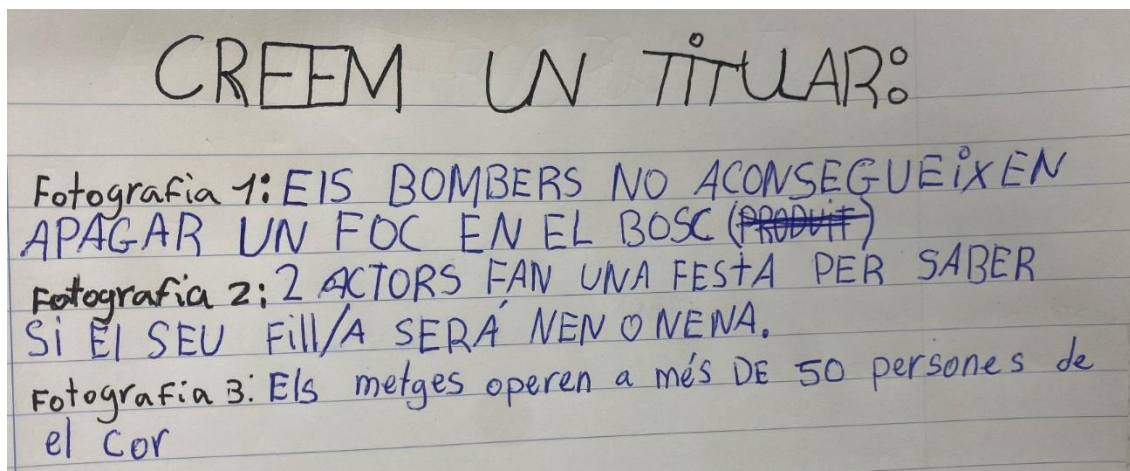 CREEM UN TITULAR:
Fotografia 1: EIS BOMBERS NO ACONSEGUEIXEN
APAGAR UN FOC EN EL BOSC (PRODUIT)
Fotografia 2: 2 ACTORS FAN UNA FESTA PER SABER
SI El SEU Fill/A SERÁ NEN O NENA.
Fotografia 3: Els metges operen a més DE 50 persones de
el cor